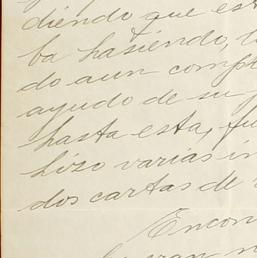 diendo que est
ba hasiendo, t
do aun comp
ayudo de su
hasta esta, fu
hizo varias in
dos cartas de
Encon